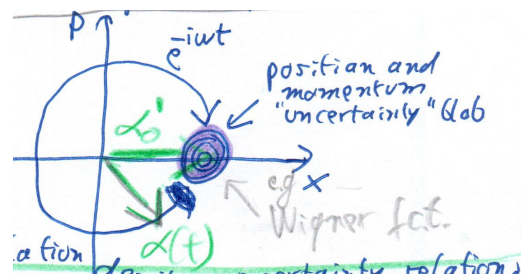 p
e^{-iωt}
position and
momentum
"uncertainly" blob
α₀'
e.g.
x
Wigner fct.
α(t)
ation
uncertainty relation